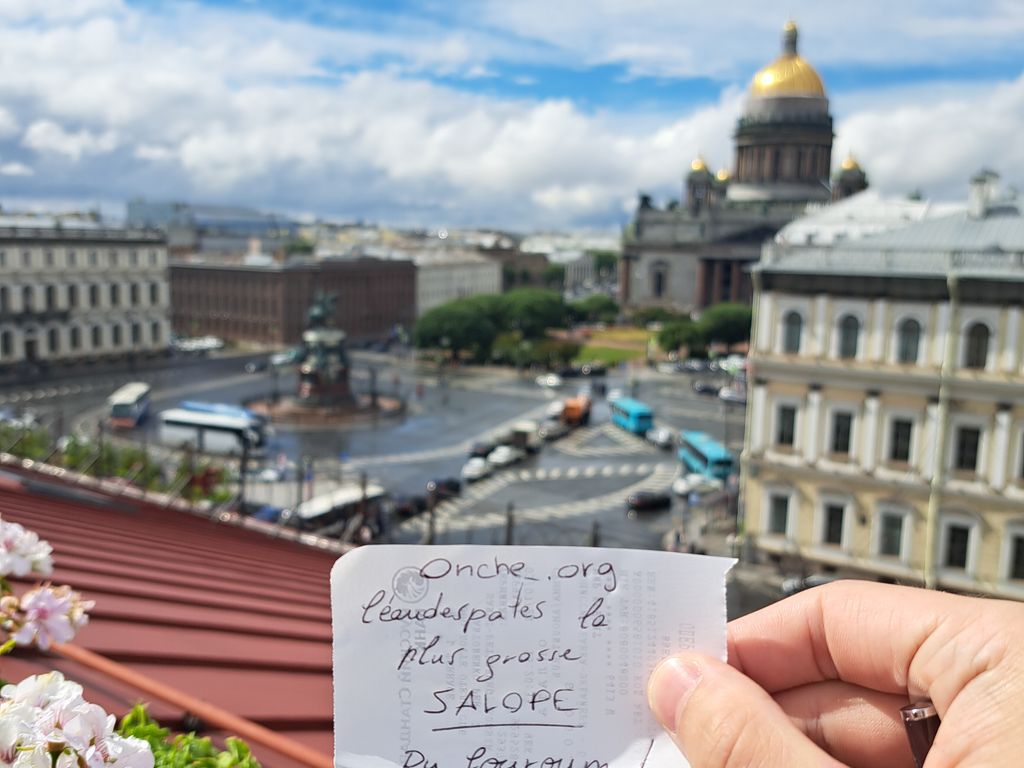 Onche_.org
léandespates la
plus grosse
SALOPE
Du fouroum